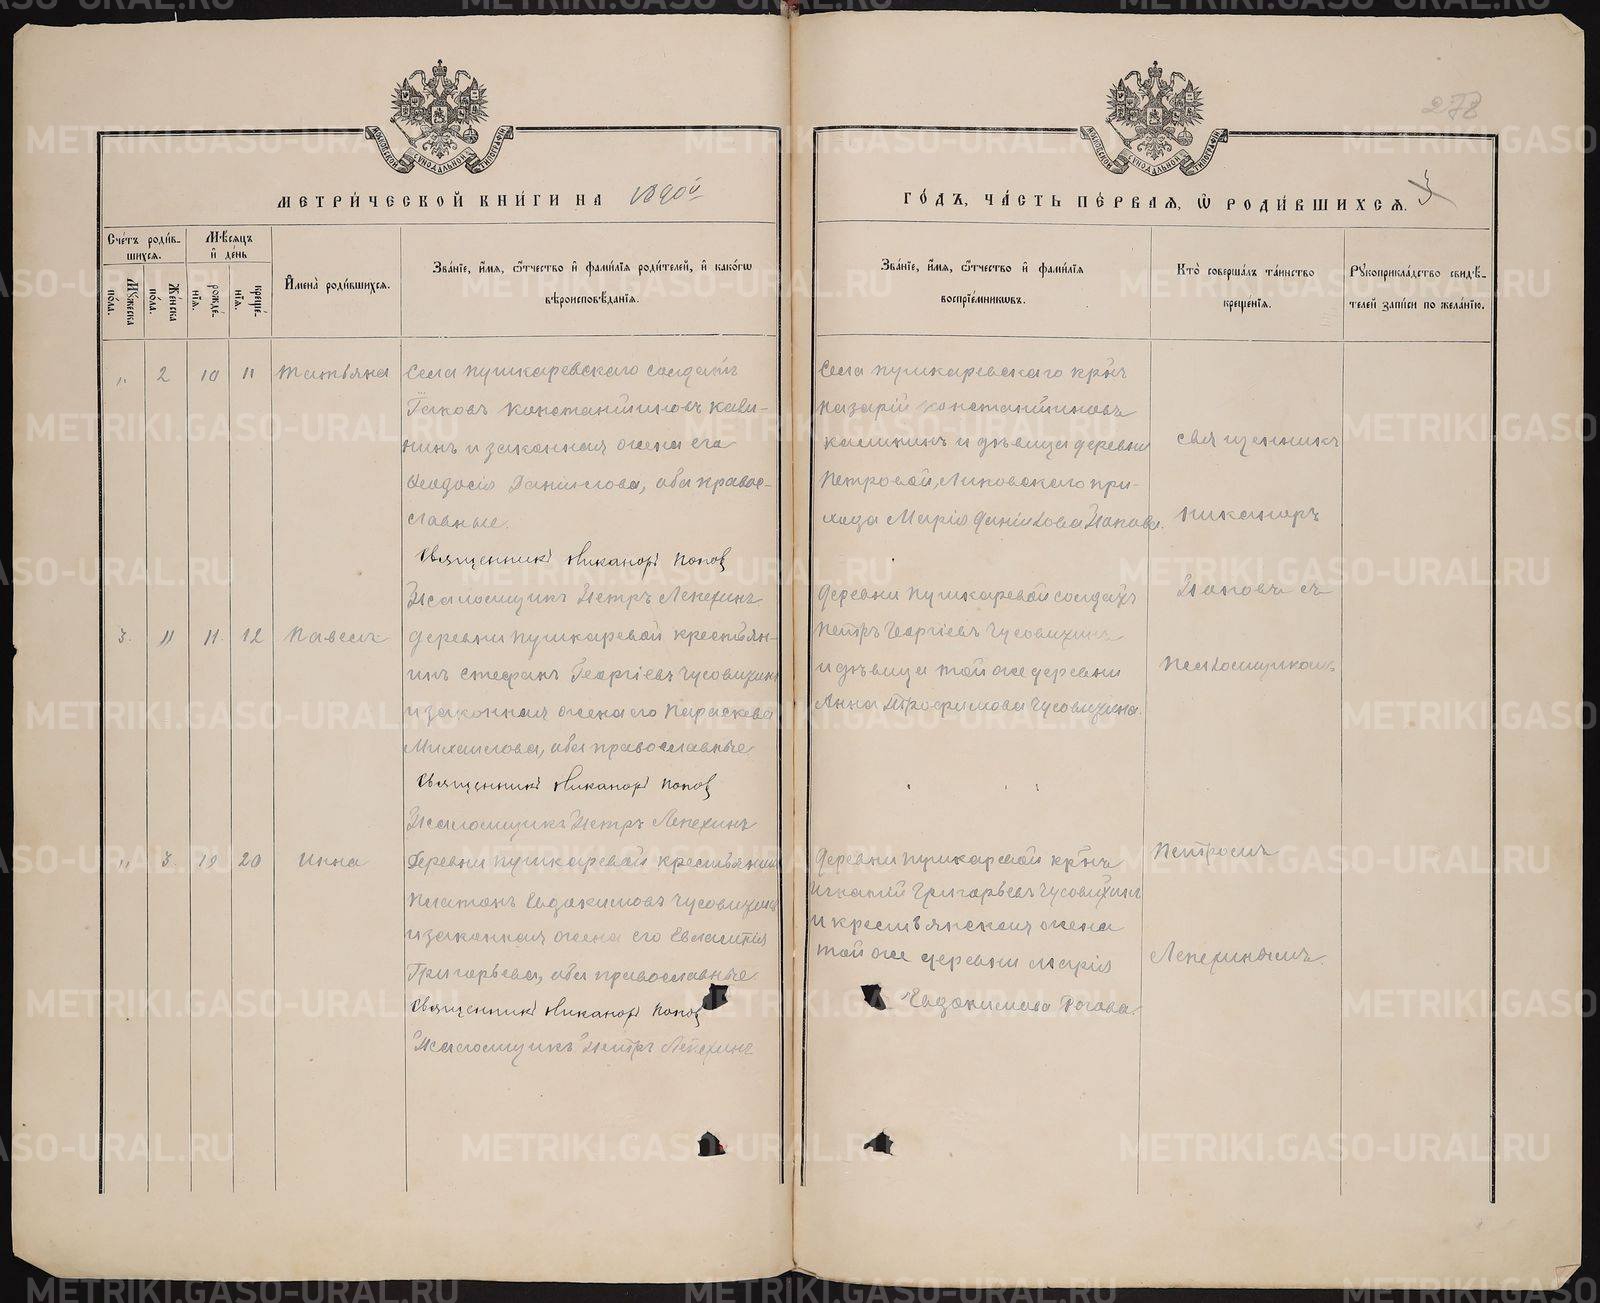 278
МЕТРИ́ЧЕСКОЙ КНИ́ГИ НА 1890й
ГО́ДЪ, ЧА́СТЬ ПЕ́РВАЯ, Ѡ РОДИ́ВШИХСЯ. 3
Сче́тъ роди́в-
шихся.
Мѣ́сяцъ
и́ де́нь
Мꙋжеска по́ла.
Же́нска по́ла.
рожде́-
нїя.
креще́-
нїя.
И҆мена̀ роди́вшихся.
Зва́нїе, и҆́мя, ѻ҆́тчество и҆ фами́лїя роди́телей, и҆ како́гѡ
вѣроисповѣ́данїя.
Зва́нїе, и҆́мя, ѻ҆́тчество и҆ фами́лїя
воспрїе́мникѡвъ.
Кто̀ соверша́лъ та́инство
креще́нїя.
Рꙋкоприкла́дство свидѣ́-
телей за́писи по жела́нїю.
" 2 10 11 Татьяна
Села Пушкаревскаго солдатъ
Іаковъ Константиновъ Кали-
нинъ и законная жена его
Ѳеодосія Данилова, оба правос-
славные.
Священникъ Никаноръ Попов
Псаломщикъ Петръ Лепехинъ
Села Пушкаревскаго кр-нъ
Назарій Константиновъ
Калининъ и дѣвица деревни
Петровой, Липовскаго при-
хода Марія Данилова Попова.
Священникъ
Никаноръ
Поповъ съ
Псаломщикомъ
Петромъ
Лепехинымъ.
3. " 11. 12 Павелъ
Деревни Пушкаревой крестьян-
инъ Стефанъ Георгіевъ Чусовитинъ
и законная жена его Параскева
Михаилова, оба православные
Священникъ Никаноръ Попов
Псаломщикъ Петръ Лепехинъ
Деревни Пушкаревой солдатъ
Петръ Георгіевъ Чусовитинъ
и дѣвица той же деревни
Анна Трофимова Чусовитина.
" 3. 19 20 Инна
Деревни Пушкаревой крестьянинъ
Платонъ Евдокимовъ Чусовитинъ
и законная жена его Евлампія
Григорьева, оба православные
Священникъ Никаноръ Попов
Псаломщикъ Петръ Лепехинъ
Деревни Пушкаревой кр-нъ
Игнатій Григорьевъ Чусовитинъ
и крестьянская жена
той же деревни Марія
Евдокимова Рогова.
METRIKI.GASO-URAL.RU